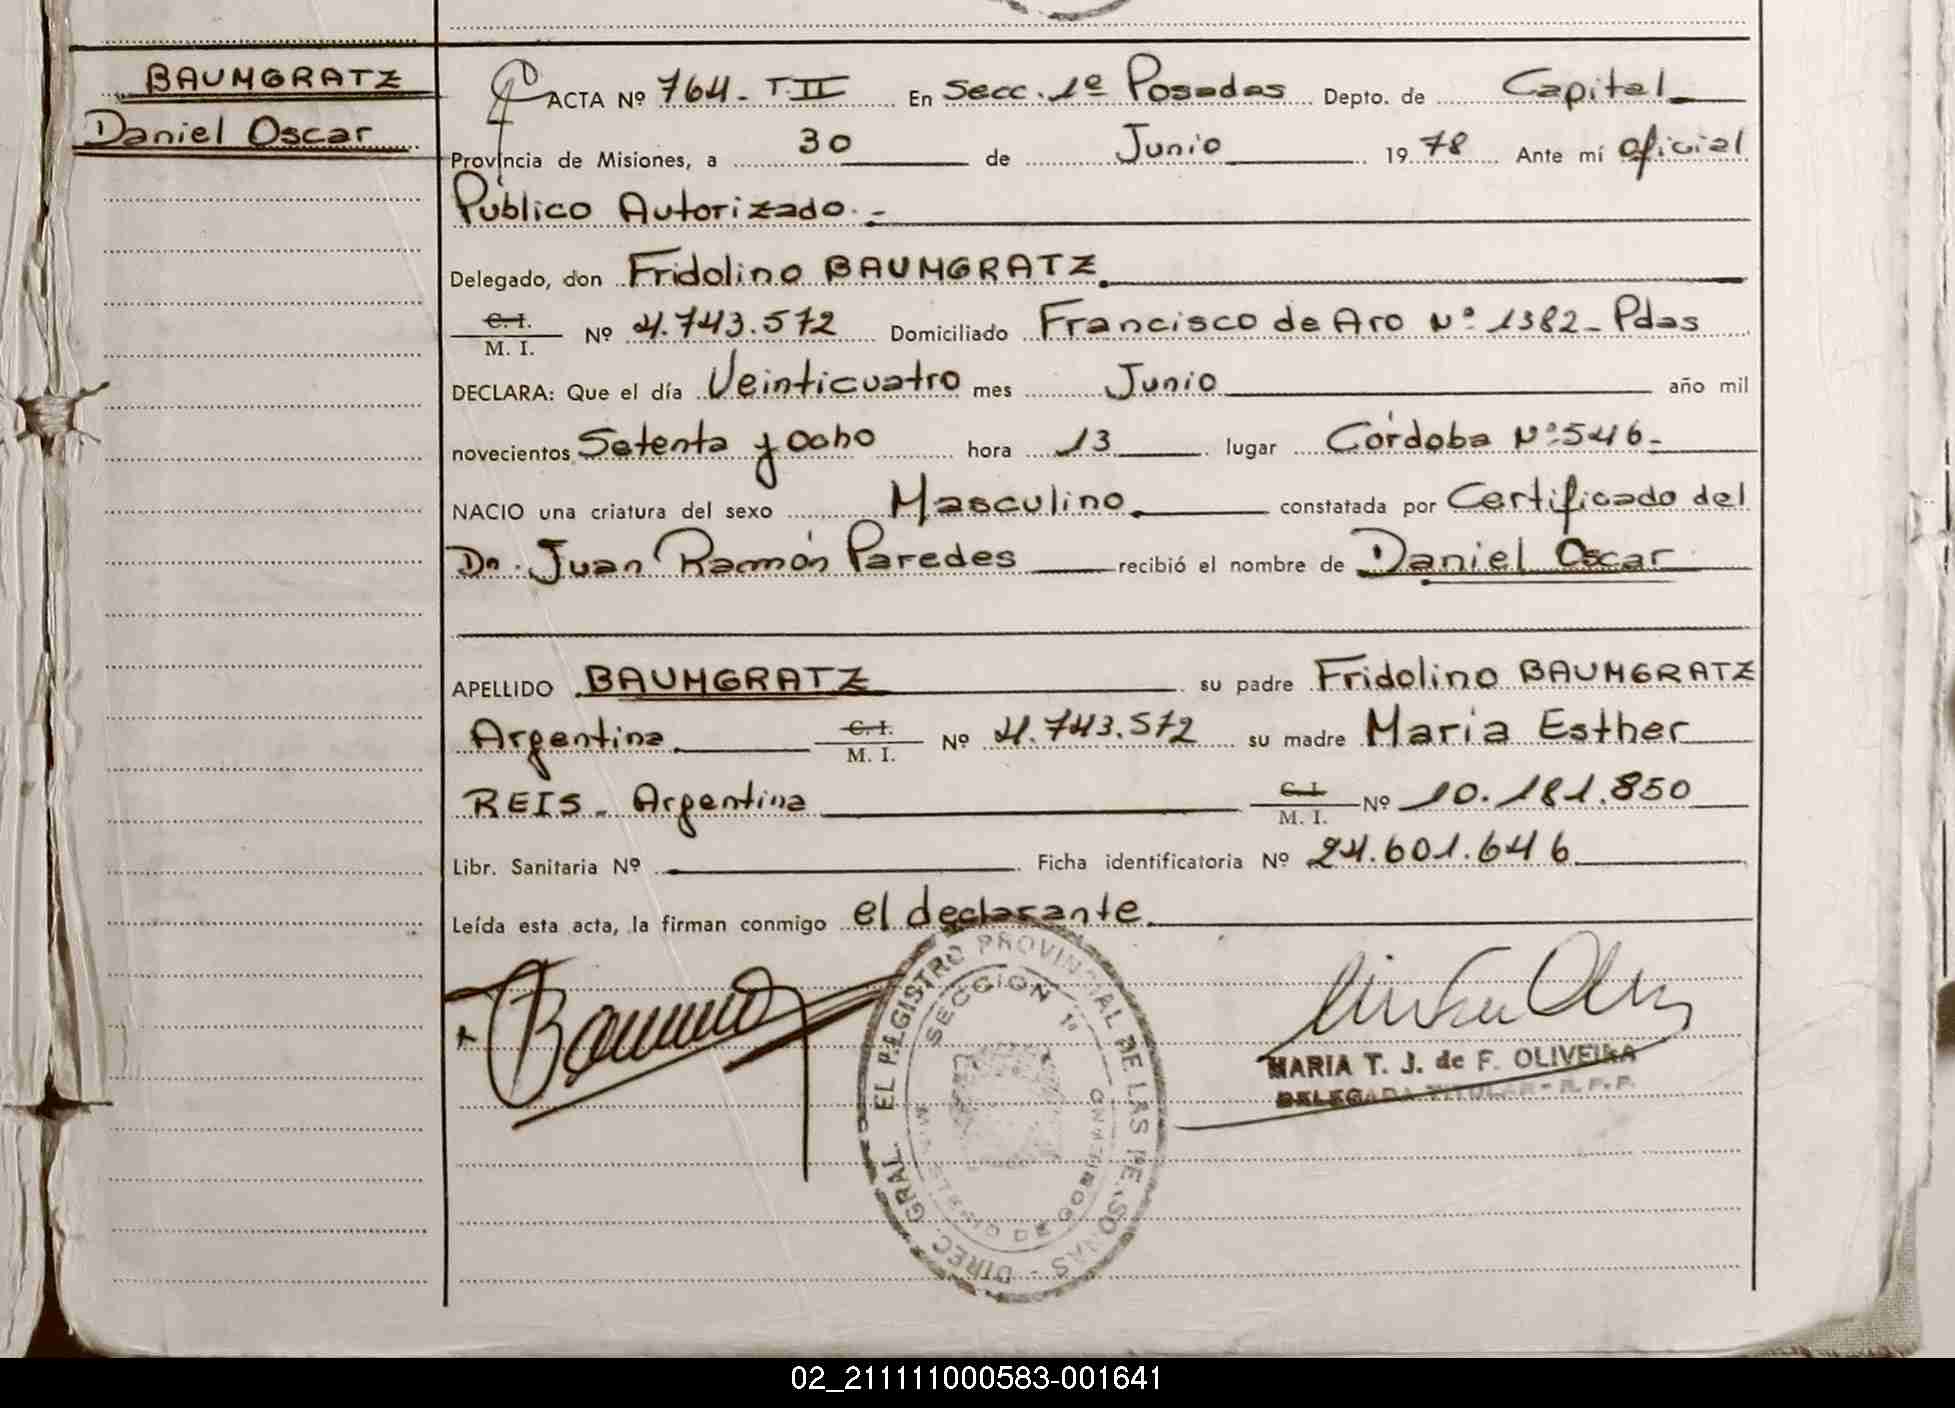 BAUMGRATZ
Daniel Oscar
ACTA Nº 764 - T.II En Secc. 1º Posadas Depto. de Capital
Provincia de Misiones, a 30 de Junio 1978 Ante mí oficial
Público Autorizado.-
Delegado, don Fridolino BAUMGRATZ
C. I.
M. I. Nº 4.743.572 Domiciliado Francisco de Aro Nº 1382- Pdas
DECLARA: Que el día Veinticuatro mes Junio año mil
novecientos Setenta y ocho hora 13 lugar Córdoba Nº 546-
NACIO una criatura del sexo Masculino constatada por Certificado del
Dn. Juan Ramón Paredes recibió el nombre de Daniel Oscar
APELLIDO BAUMGRATZ su padre Fridolino BAUMGRATZ
Argentina C. I. M. I. Nº 4.743.572 su madre Maria Esther
REIS - Argentina C. I. M. I. Nº 10.181.850
Libr. Sanitaria Nº Ficha identificatoria Nº 24.601.646
Leída esta acta, la firman conmigo el declarante
DIREC. GRAL. EL REGISTRO PROVINCIAL DE LAS PERSONAS
SECCION 1ª
MINISTERIO DE GOBIERNO
MARIA T. J. de F. OLIVEIRA
DELEGADA TITULAR - R.P.P.
02_211111000583-001641